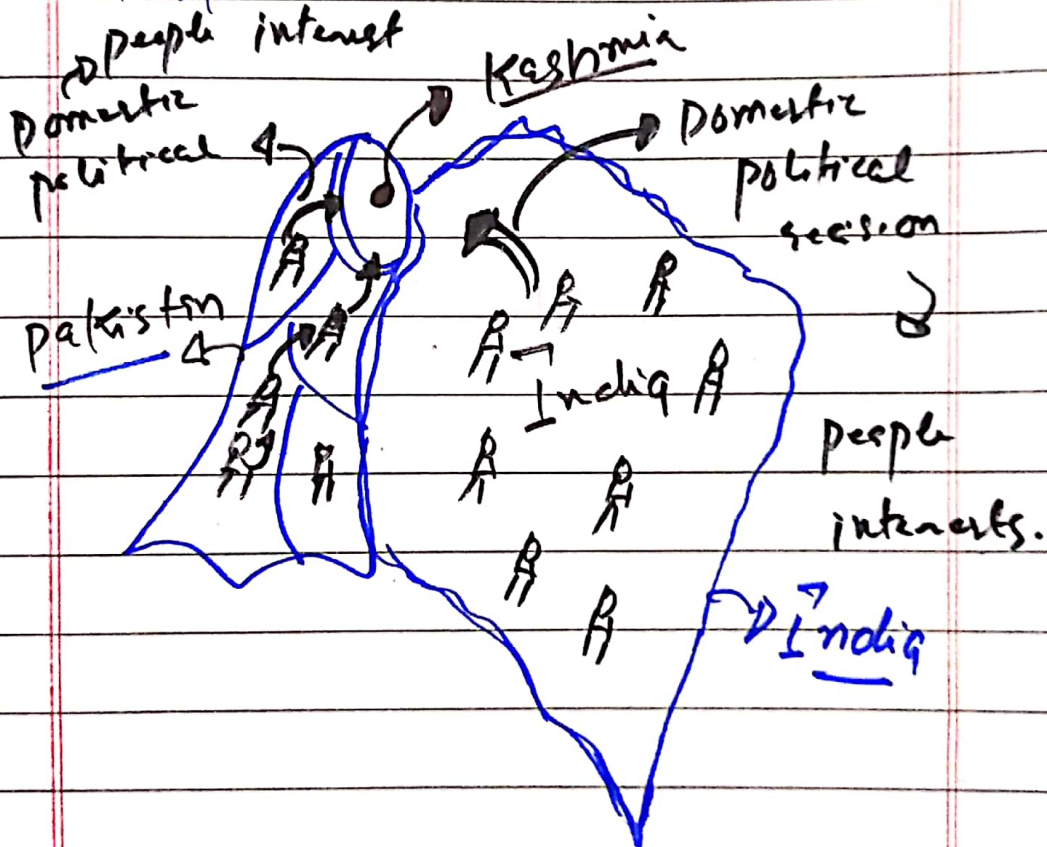 people interest
Domestic
political
Kashmir
Domestic
political
decision
pakistin
India
people
interests.
India